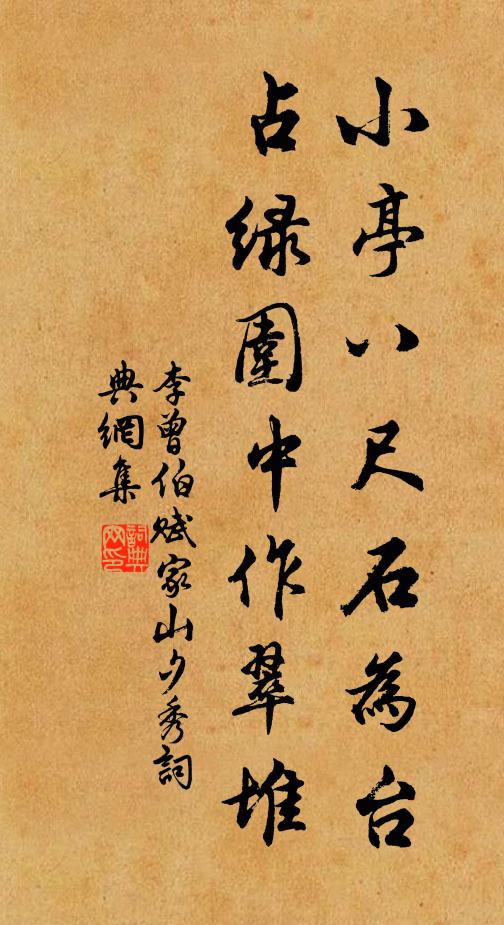 小亭八尺石為台
占緑圍中作翠堆
李曾伯賦家山夕秀詞
典網集
詞典
网印